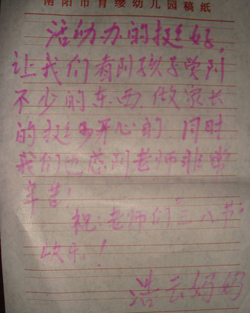 南阳市育缨幼儿园稿纸
活动办的挺好,
让我们看到孩子学到
不少的东西,做家长
的挺开心的 同时
我们也感到老师非常
辛苦!
祝:老师们"三八节"
快乐!
浩云妈妈